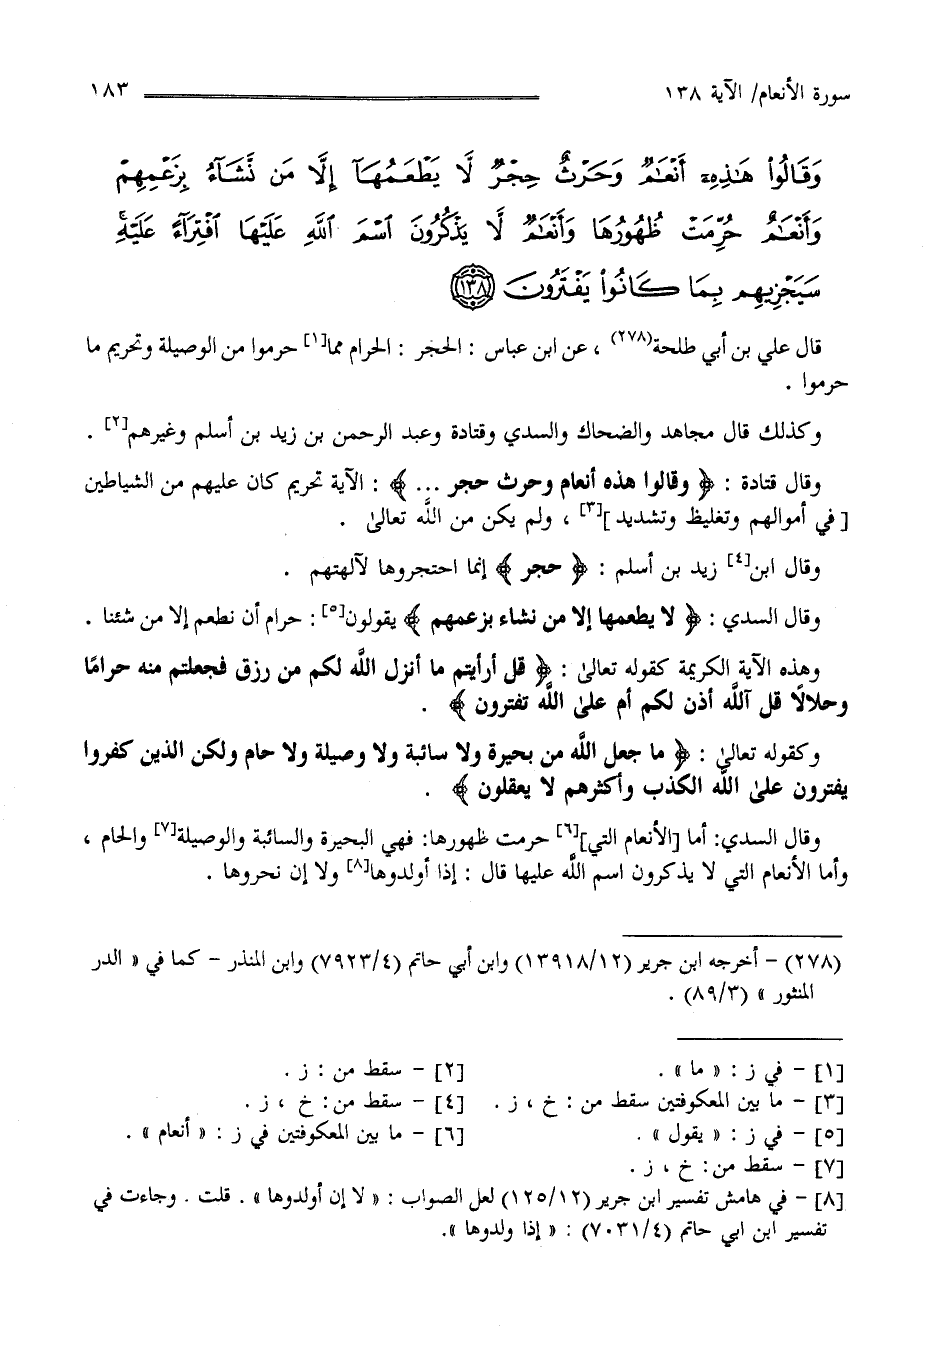 سورة الأنعام/ الآية ١٣٨ ١٨٣
وَقَالُوا۟ هَـٰذِهِۦٓ أَنْعَـٰمٌ وَحَرْثٌ حِجْرٌ لَّا يَطْعَمُهَآ إِلَّا مَن نَّشَآءُ بِزَعْمِهِمْ
وَأَنْعَـٰمٌ حُرِّمَتْ ظُهُورُهَا وَأَنْعَـٰمٌ لَّا يَذْكُرُونَ ٱسْمَ ٱللَّهِ عَلَيْهَا ٱفْتِرَآءً عَلَيْهِ ۚ
سَيَجْزِيهِم بِمَا كَانُوا۟ يَفْتَرُونَ ١٣٨
قال علي بن أبي طلحة(٢٧٨) ، عن ابن عباس : الحجر : الحرام مما[١] حرموا من الوصيلة وتحريم ما
حرموا .
وكذلك قال مجاهد والضحاك والسدي وقتادة وعبد الرحمن بن زيد بن أسلم وغيرهم[٢] .
وقال قتادة : ﴿ وقالوا هذه أنعام وحرث حجر ... ﴾ : الآية تحريم كان عليهم من الشياطين
[في أموالهم وتغليظ وتشديد][٣] ، ولم يكن من اللَّه تعالىٰ .
وقال ابن[٤] زيد بن أسلم : ﴿ حجر ﴾ إنما احتجروها لآلهتهم .
وقال السدي : ﴿ لا يطعمها إلا من نشاء بزعمهم ﴾ يقولون[٥] : حرام أن نطعم إلا من شئنا .
وهذه الآية الكريمة كقوله تعالىٰ : ﴿ قل أرأيتم ما أنزل اللَّه لكم من رزق فجعلتم منه حرامًا
وحلالًا قل آللَّه أذن لكم أم علىٰ اللَّه تفترون ﴾ .
وكقوله تعالىٰ : ﴿ ما جعل اللَّه من بحيرة ولا سائبة ولا وصيلة ولا حام ولكن الذين كفروا
يفترون علىٰ اللَّه الكذب وأكثرهم لا يعقلون ﴾ .
وقال السدي: أما [الأنعام التي][٦] حرمت ظهورها: فهي البحيرة والسائبة والوصيلة[٧] والحام ،
وأما الأنعام التي لا يذكرون اسم اللَّه عليها قال : إذا أولدوها[٨] ولا إن نحروها .
(٢٧٨) - أخرجه ابن جرير (١٣٩١٨/١٢) وابن أبي حاتم (٧٩٢٣/٤) وابن المنذر - كما في « الدر
المنثور » (٨٩/٣) .
[١] - في ز : « ما » . [٢] - سقط من : ز .
[٣] - ما بين المعكوفتين سقط من : خ ، ز . [٤] - سقط من : خ ، ز .
[٥] - في ز : « يقول » . [٦] - ما بين المعكوفتين في ز : « أنعام » .
[٧] - سقط من: خ ، ز .
[٨] - في هامش تفسير ابن جرير (١٢٥/١٢) لعل الصواب : « لا إن أولدوها » . قلت . وجاءت في
تفسير ابن ابي حاتم (٧٠٣١/٤) : « إذا ولدوها ».